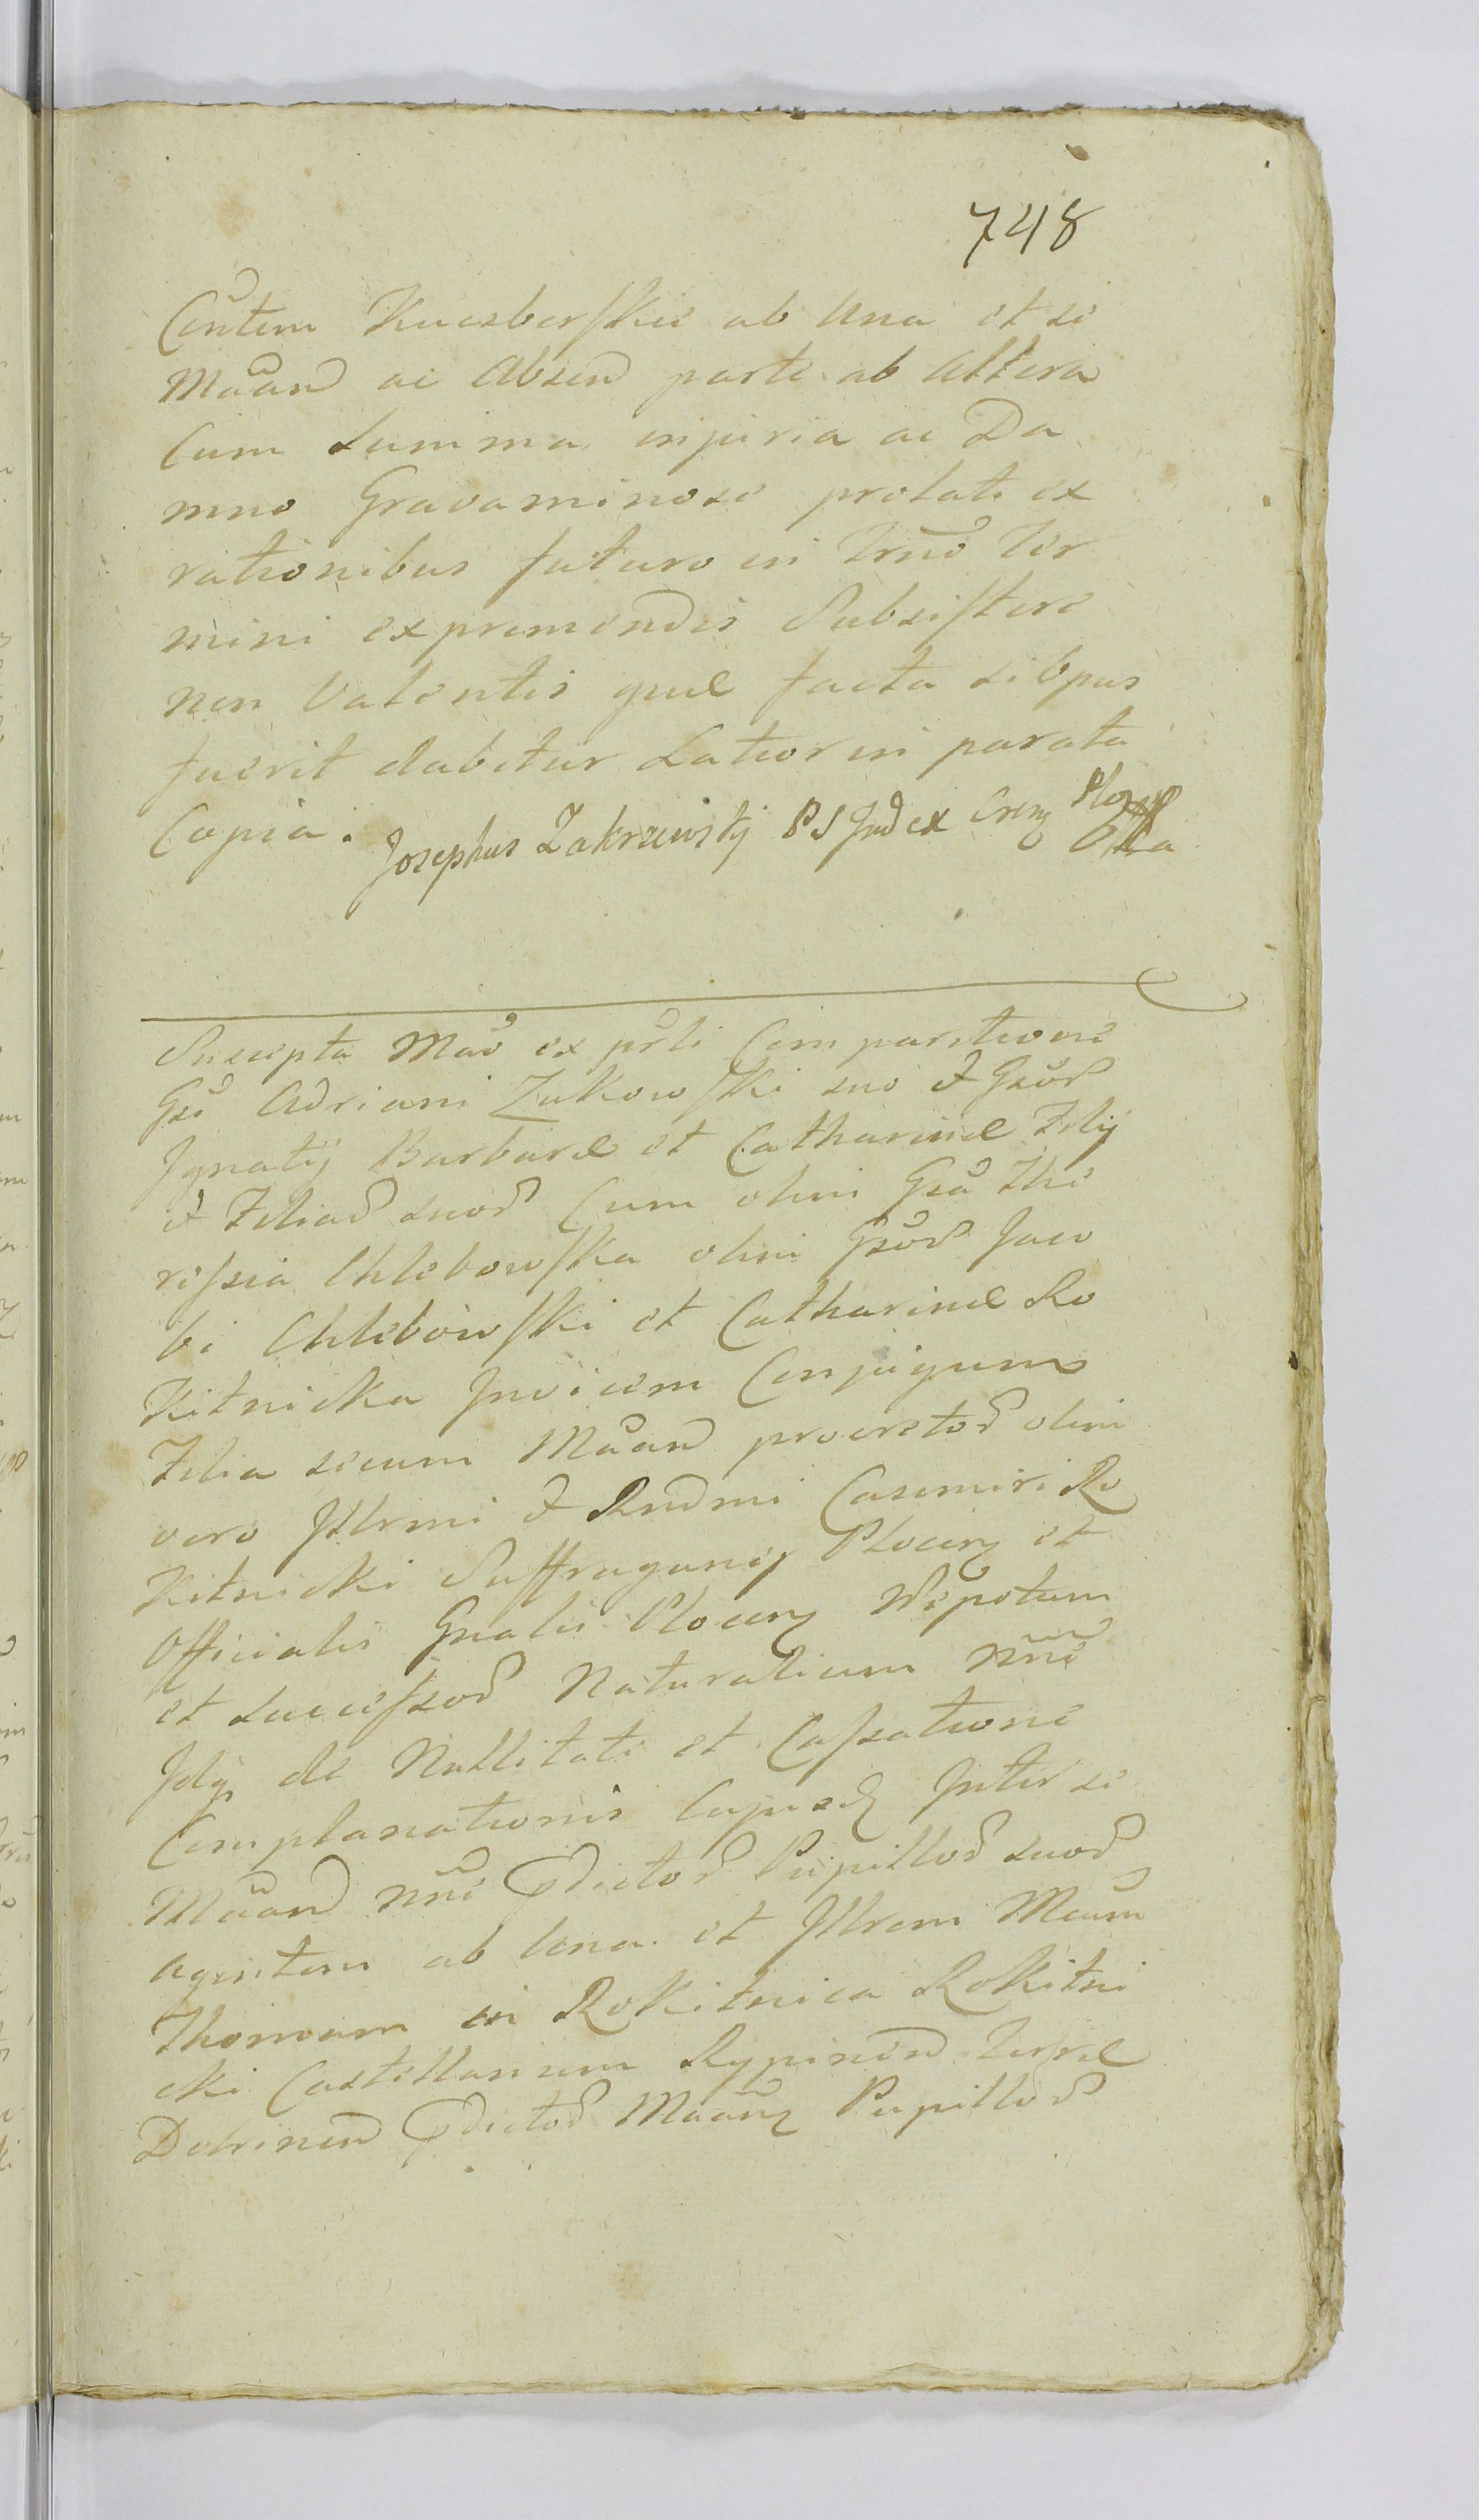 748
Cen̄tem Kuczborskie ab Una et se
Māan̄ ac Absen̄ parte ab altera
Cum Summa injuria ac Da
mno Gravaminose prolati ex
rationibus futuro in Trn̄o Ter
mini exprimendis Subsistere
non Valentis quæ facta sibpus
fuerit dabitur Latior in parata
Copia.
Josephus Zakrzewskij PS Judex
Suscepta Māo ex pr̄li Comparitione
Gsi Adriani Zukowski suo & Gsor̄
Ignatij Barbaræ et Catharinæ Filij
& Filiar̄ suor̄ Cum olim Gsa The
ressia Chlebowska olim Gsor̄ Jaco
bi Chlebowski et Catharinæ Ro
Kitnicka Invicem Conjugum
Filia secum Māan̄ procreator̄ olim
vero Illrmi & Rndmi Casimiri Ro
Kitnicki Suffraganej Plocen̄ et
Officialis Gnalis Plocen̄ Nepotum
et Successor̄ Naturalium nn̄e
Idq de Nullitate et Cassatione
Complanationis Cujusdę Inter se
Māan̄ nn̄e Pdictor̄ Pupillor̄ suor̄
agentem ab Una et Illrem Mcum
Thomam in Rokitnica Rokitni
cki Castellanum Rypinen̄ Terræ
Dobrinen̄ Pdictor̄ Māan̄ Pupillor̄